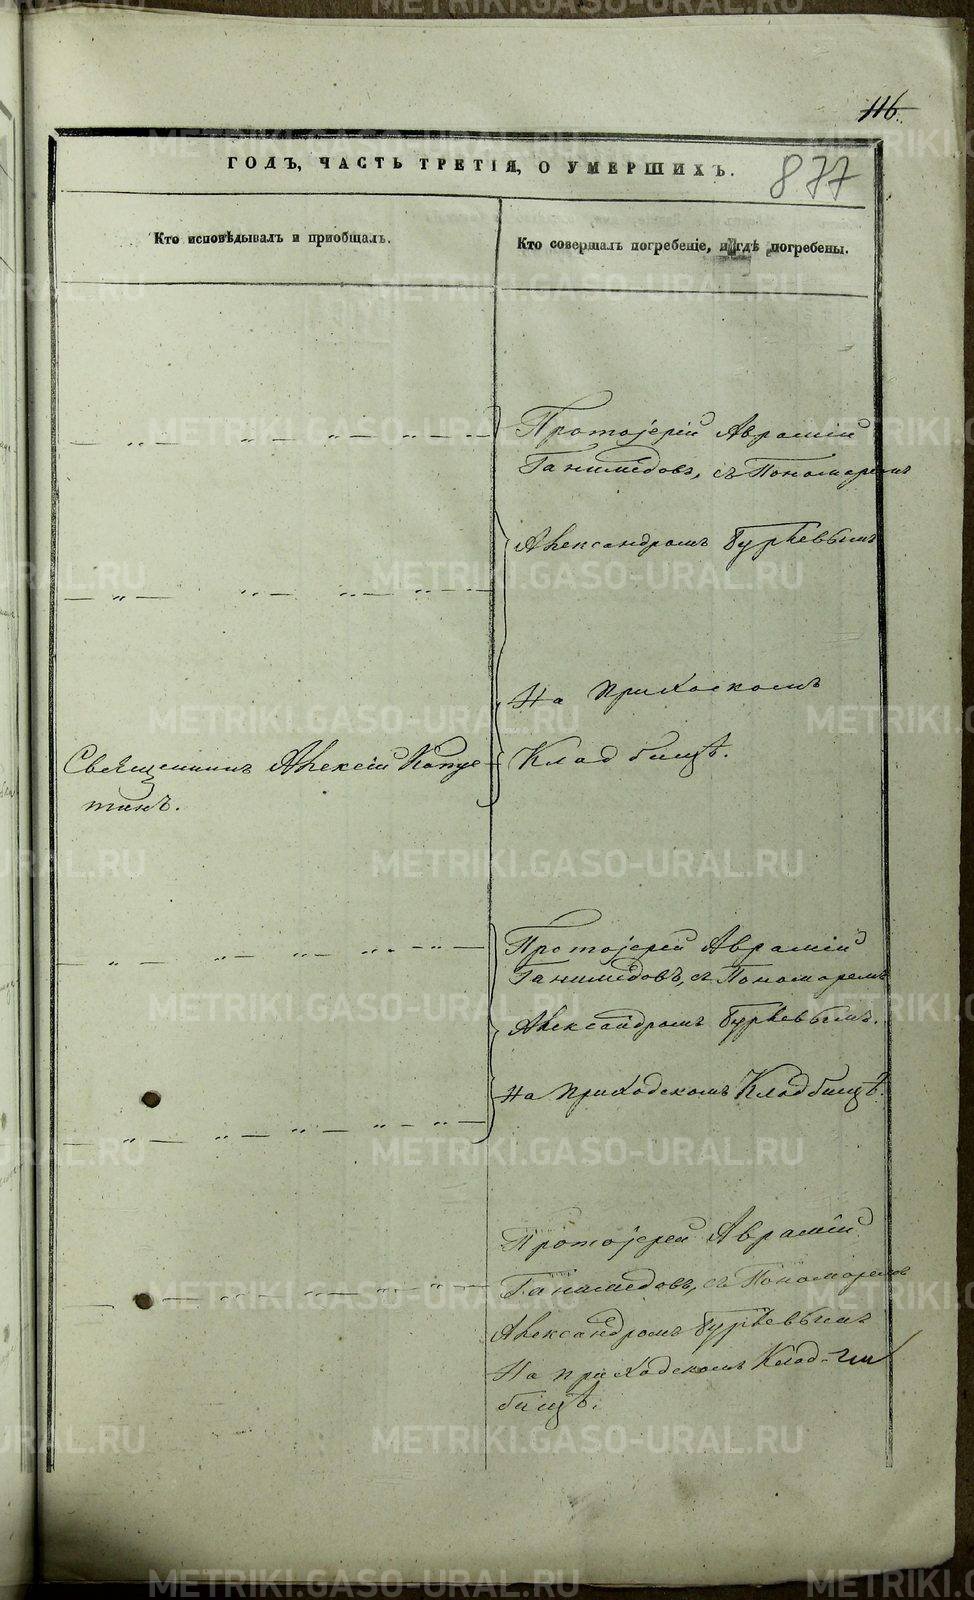 116.
877
ГОДЪ, ЧАСТЬ ТРЕТІЯ, О УМЕРШИХЪ.
Кто исповѣдывалъ и пріобщалъ.
Кто совершалъ погребеніе, и гдѣ погребены.
Протоіерей Аврамій
Ганимедовъ, съ Пономаремъ
Александромъ Гурьевымъ
На Приходскомъ
Кладбищѣ.
Священникъ Алексій Капус
тинъ.
Протоіерей Аврамій
Ганимедовъ, съ Пономаремъ
Александромъ Гурьевымъ.
На Приходскомъ Кладбищѣ.
Протоіерей Аврамій
Ганимедовъ, съ Пономаремъ
Александромъ Гурьевымъ
На приходскомъ Клад-
бищѣ.
METRIKI.GASO-URAL.RU